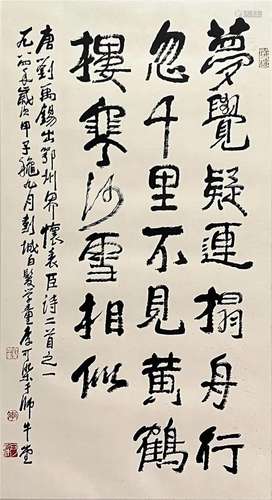 夢覺疑連榻舟行
忽千里不見黄鶴
樓寒沙雪相似
唐劉禹錫出鄂州界懷表臣詩二首之一
一九八四年歲次甲子九月彭城白髮學童李可染于師牛堂